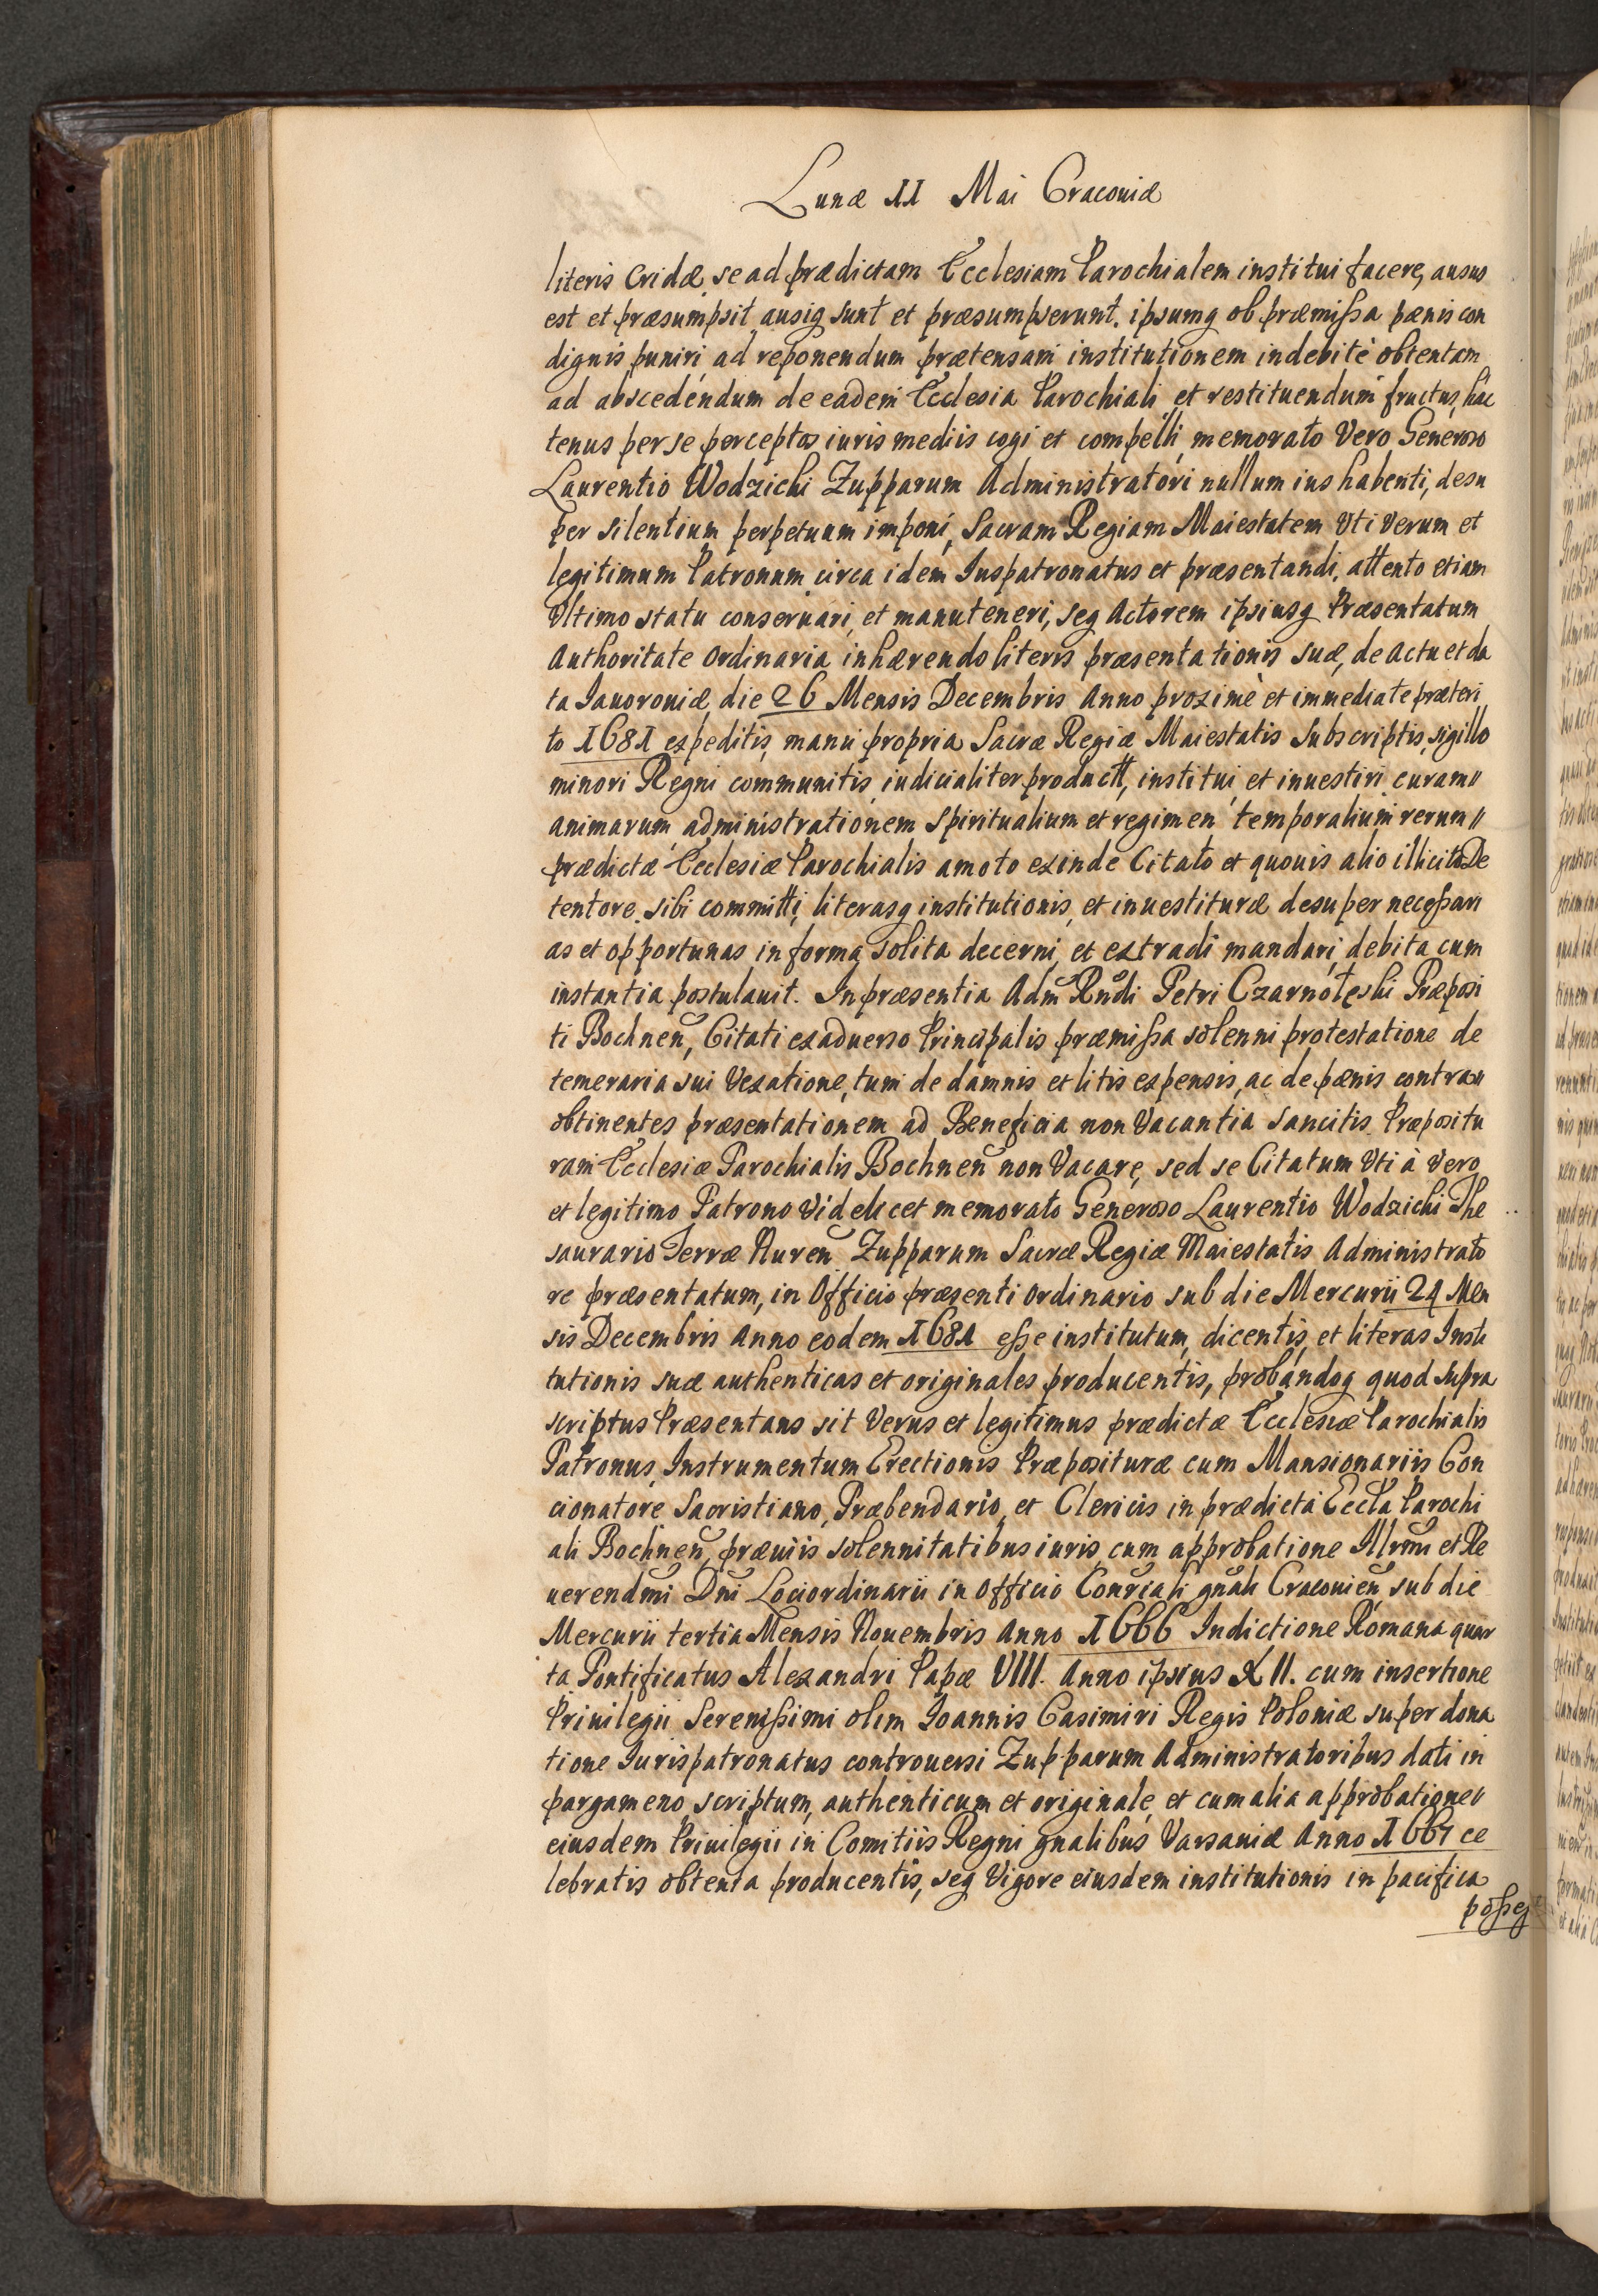 Lunæ 11 Mai Cracouiæ
literis Cridæ, se ad prædictam Ecclesiam Parochialem institui facere, ausus
est et præsumpsit ausiq sunt et præsumpserunt. ipsumq ob præmissa pænis con
dignis puniri ad reponendum prætensam institutionem indebitè obtentam
ad abscedendum de eadem Ecclesia Parochiali, et restituendum fructus, hac
tenus per se perceptos iuris mediis cogi et compelli, memorato Vero Generoso
Laurentio Wodzicki Zupparum Administratori nullum ius habenti, desu
per silentium perpetuum imponi, Sacram Regiam Maiestatem Vti Verum et
legitimum Patronum circa idem Iuspatronatus et præsentandi, attento etiam
Vltimo statu conseruari, et manuteneri, seq Actorem ipsiusq Præsentatum
Authoritate Ordinaria inhærendo literis præsentationis suæ, de Actu et da
ta Iauorouiæ die 26 Mensis Decembris Anno proximè et immediate præteri
to 1681 expeditis, manu propria Sacræ Regiæ Maiestatis Subscriptis, sigillo
minori Regni communitis, iudicialiter product, institui, et inuestiri, curam
animarum, administrationem Spiritualium et regimen temporalium rerum
prædictæ Ecclesiæ Parochialis amoto exinde Citato et quouis alio illicito De
tentore, sibi committi, literasq institutionis, et inuestituræ desuper necessari
as et opportunas in forma solita decerni, et extradi mandari, debita cum
instantia postulauit. In præsentia Adm Rndi Petri Czarnołęski Præposi
ti Bochnen, Citati ex aduerso Principalis præmissa solenni protestatione de
temeraria sui Vexatione, tum de damnis et litis expensis, ac de pænis contra
obtinentes præsentationem ad Beneficia non Vacantia Sancitis. Præpositu
ram Ecclesiæ Parochialis Bochnen non Vacare, sed se Citatum Vti à Vero
et legitimo Patrono Videlicet memorato Generoso Laurentio Wodzicki The
saurario Terræ Nuren Zupparum Sacræ Regiæ Maiestatis Administrato
re præsentatum, in Officio præsenti Ordinario sub die Mercurii 24 Men
sis Decembris Anno eodem 1681 esse institutum, dicentis, et literas Insti
tutionis suæ authenticas et originales producentis, probandoq quod supra
scriptus Præsentans sit Verus et legitimus prædictæ Ecclesiæ Parochialis
Patronus, Instrumentum Erectionis Præposituræ cum Mansionariis Con
cionatore Sacristiano, Præbendario, et Clericis in prædicta Eccla Parochi
ali Bochnen, præuiis solennitatibus iuris, cum approbatione Illrmi et Re
uerendmi Dni Lociordinarii in Officio Conriali gnali Cracouien sub die
Mercurii tertia Mensis Nouembris Anno 1666 Indictione Romana quar
ta Pontificatus Alexandri Papæ VIII. Anno ipsius XII. cum insertione
Priuilegii Serenissimi olim Ioannis Casimiri Regis Poloniæ super dona
tione Iurispatronatus controuersi Zupparum Administratoribus dati in
pargameno scriptum, authenticum et originale, et cum alia approbatione
eiusdem Priuilegii in Comitiis Regni gnalibus Varsauiæ Anno 1661 ce
lebratis obtenta producentis, seq Vigore eiusdem institutionis in pacifica